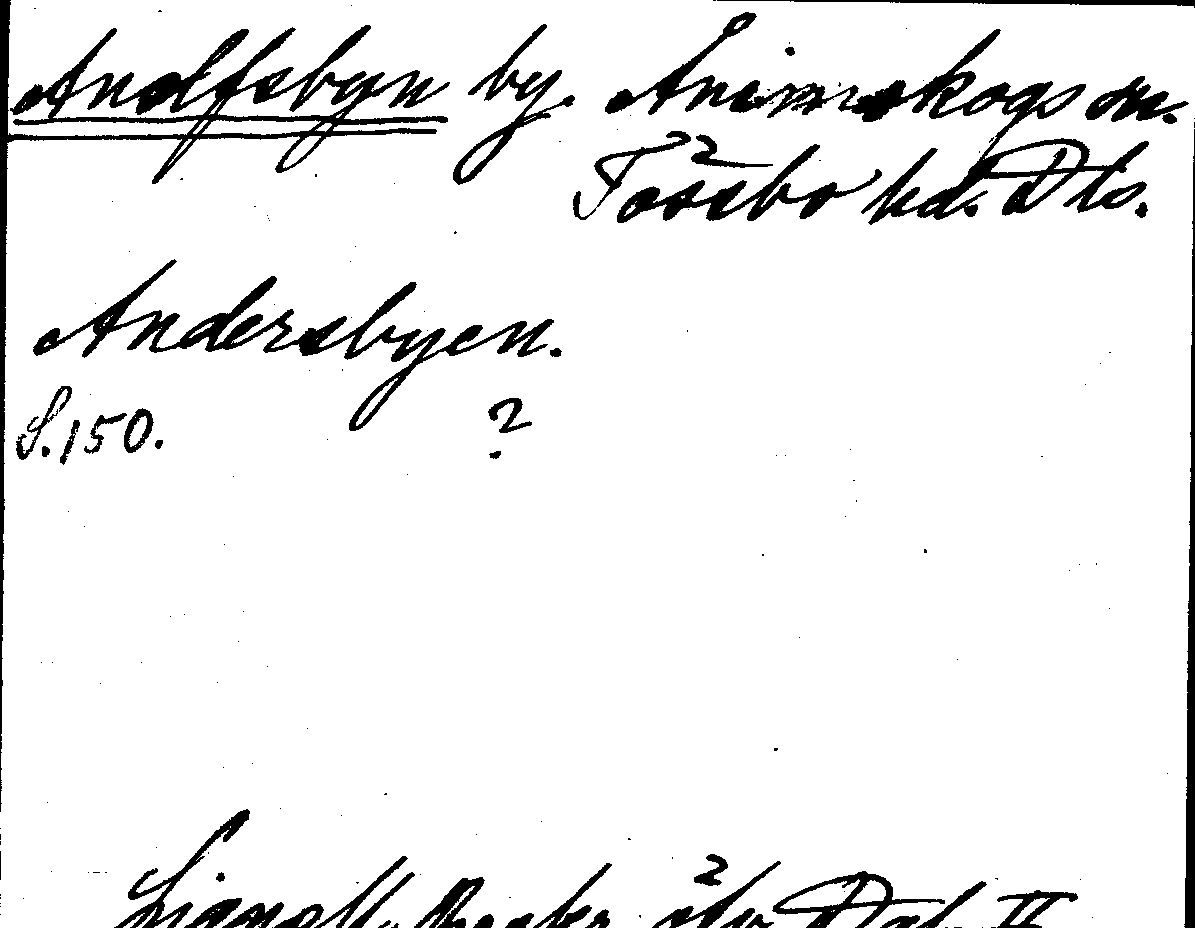 Anolfsbyn by. Ånimskogs sn.
Tössbo hd. Dls.
Andersbyen.
S. 150. ?
Lignell, Beskr. öfv. Dal. II